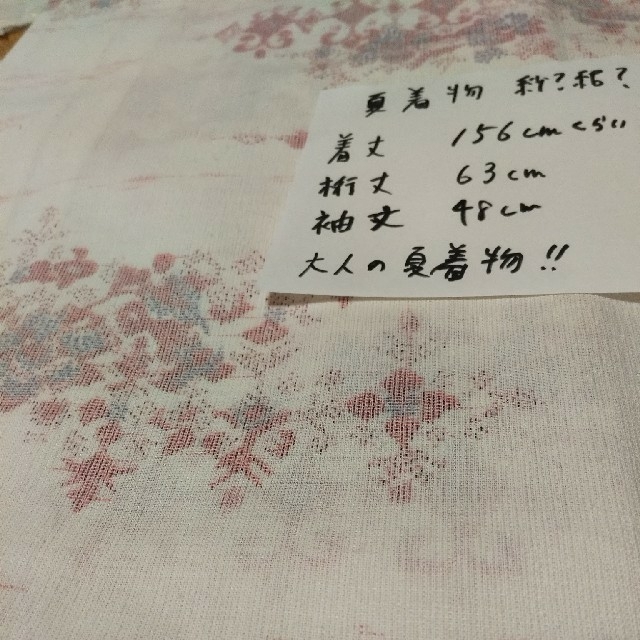 夏着物 紗?絽?
着丈 156cmくらい
裄丈 63cm
袖丈 48cm
大人の夏着物!!